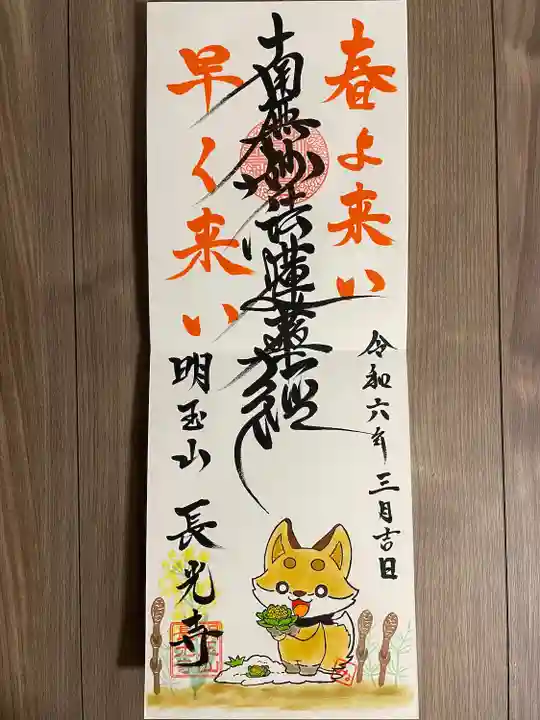 春よ来い
早く来い
南無妙法蓮華経
令和六年三月吉日
明玉山 長光寺